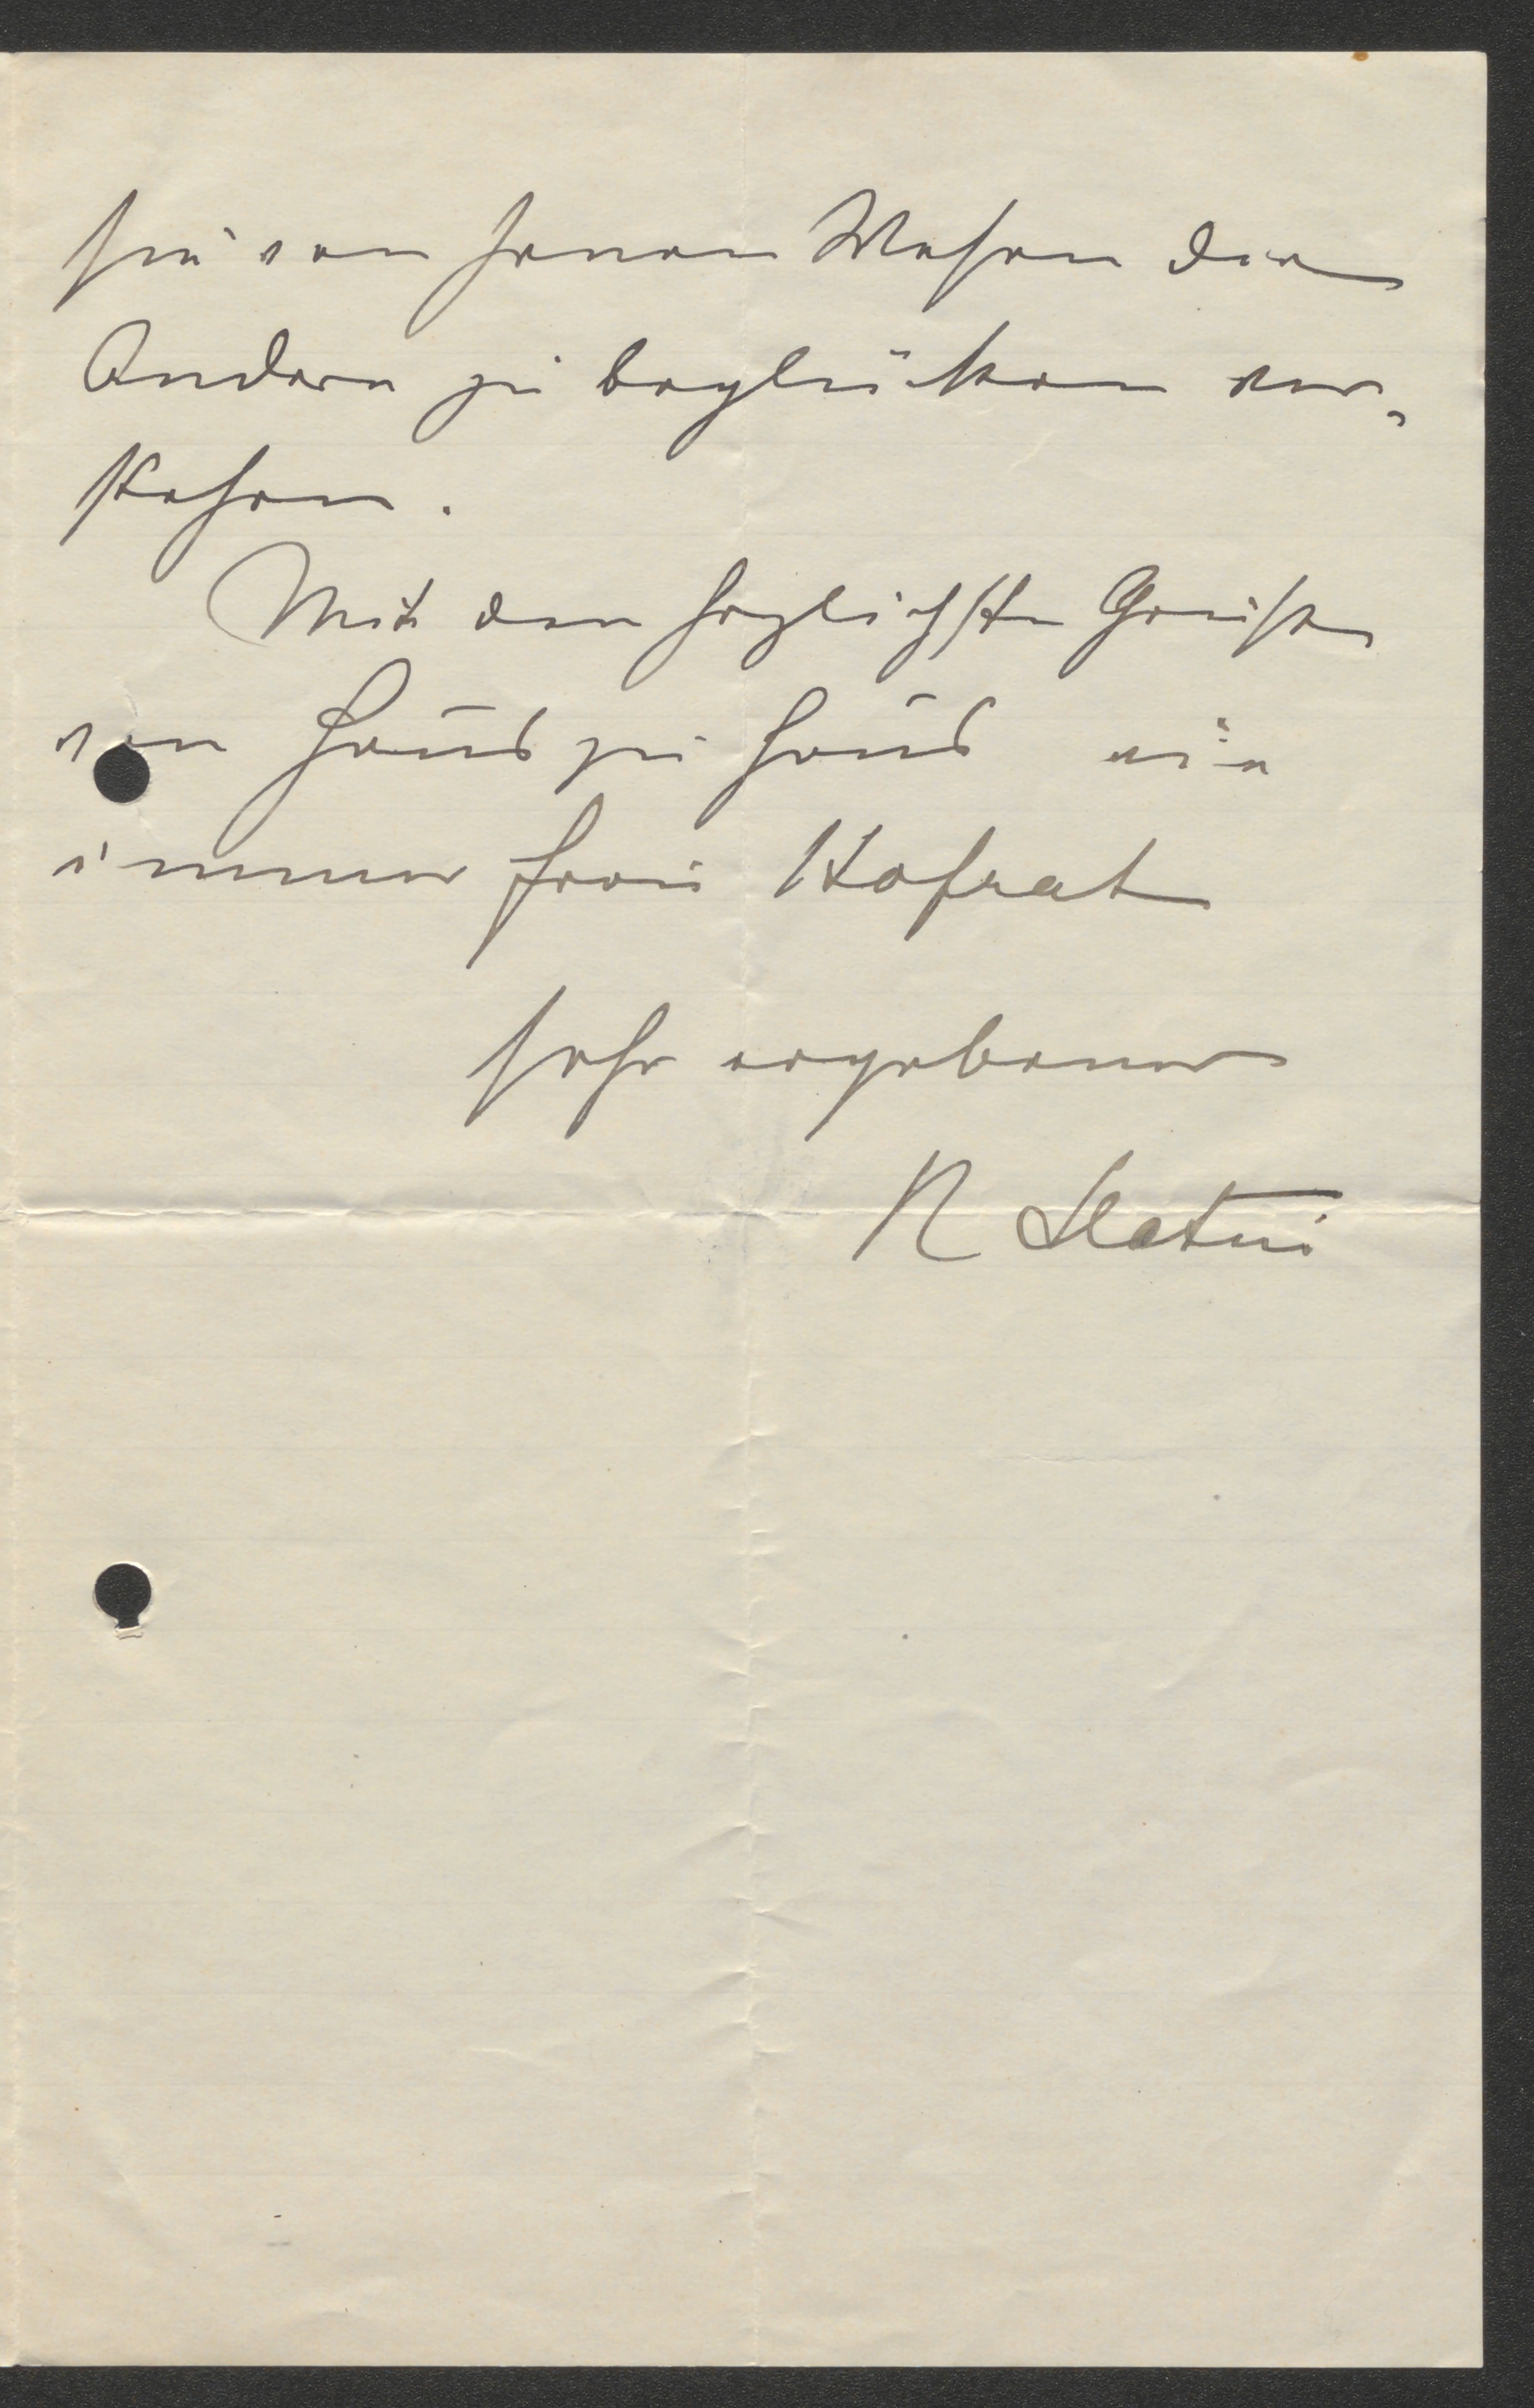 sie von jenen Wesen die
Andere zu beglücken ver-
stehen.
Mit den herzlichsten Grüßen
von Haus zu Haus wie
immer Frau Hofrat
sehr ergebener
R Slatin